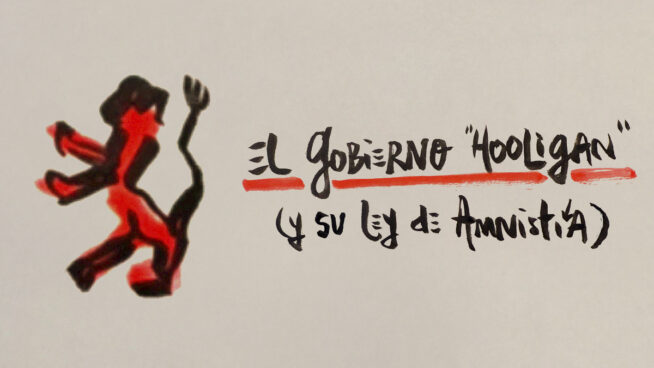 El Gobierno "Hooligan"
(y su Ley de Amnistía)